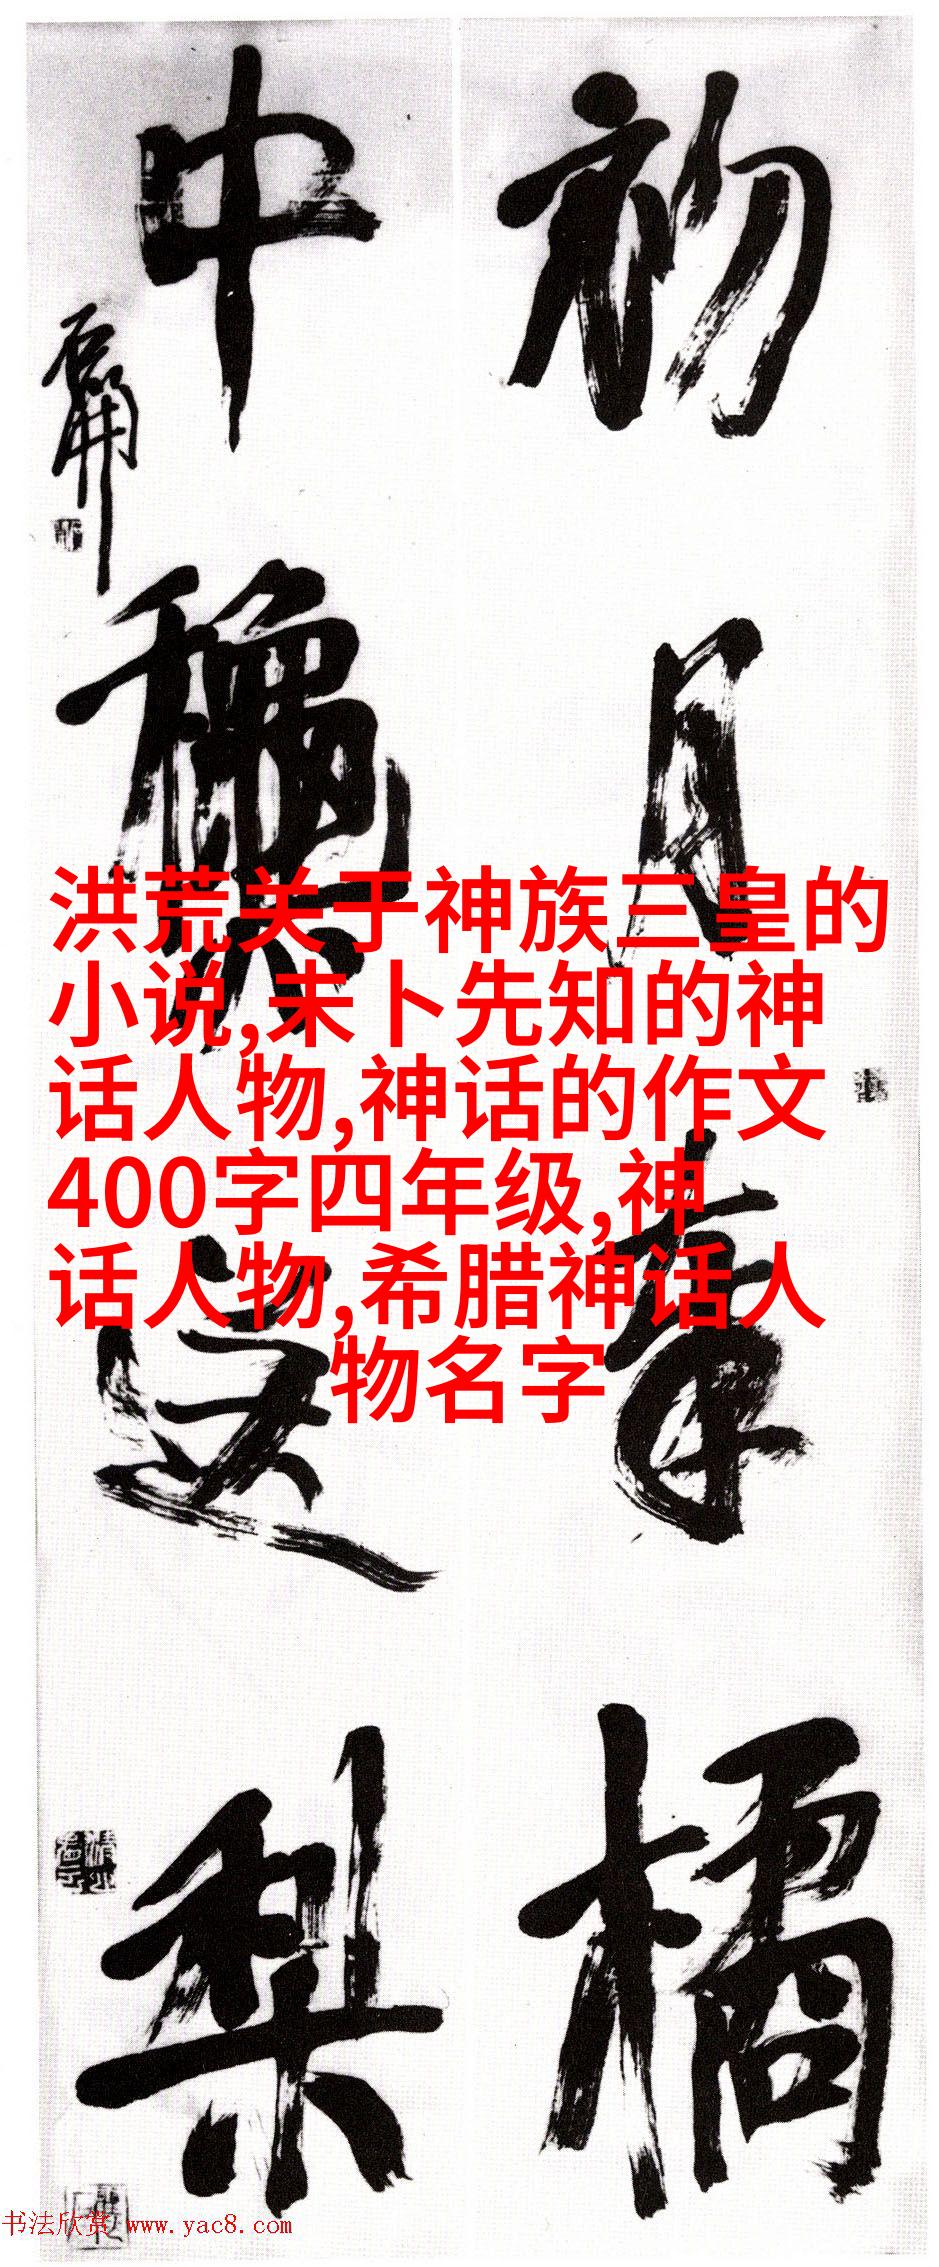 初月橘
中梨
洪荒关于神族三皇的
小说,未卜先知的神
话人物,神话的作文
400字四年级,神
话人物,希腊神话人
物名字
书法欣赏 www.yac8.com